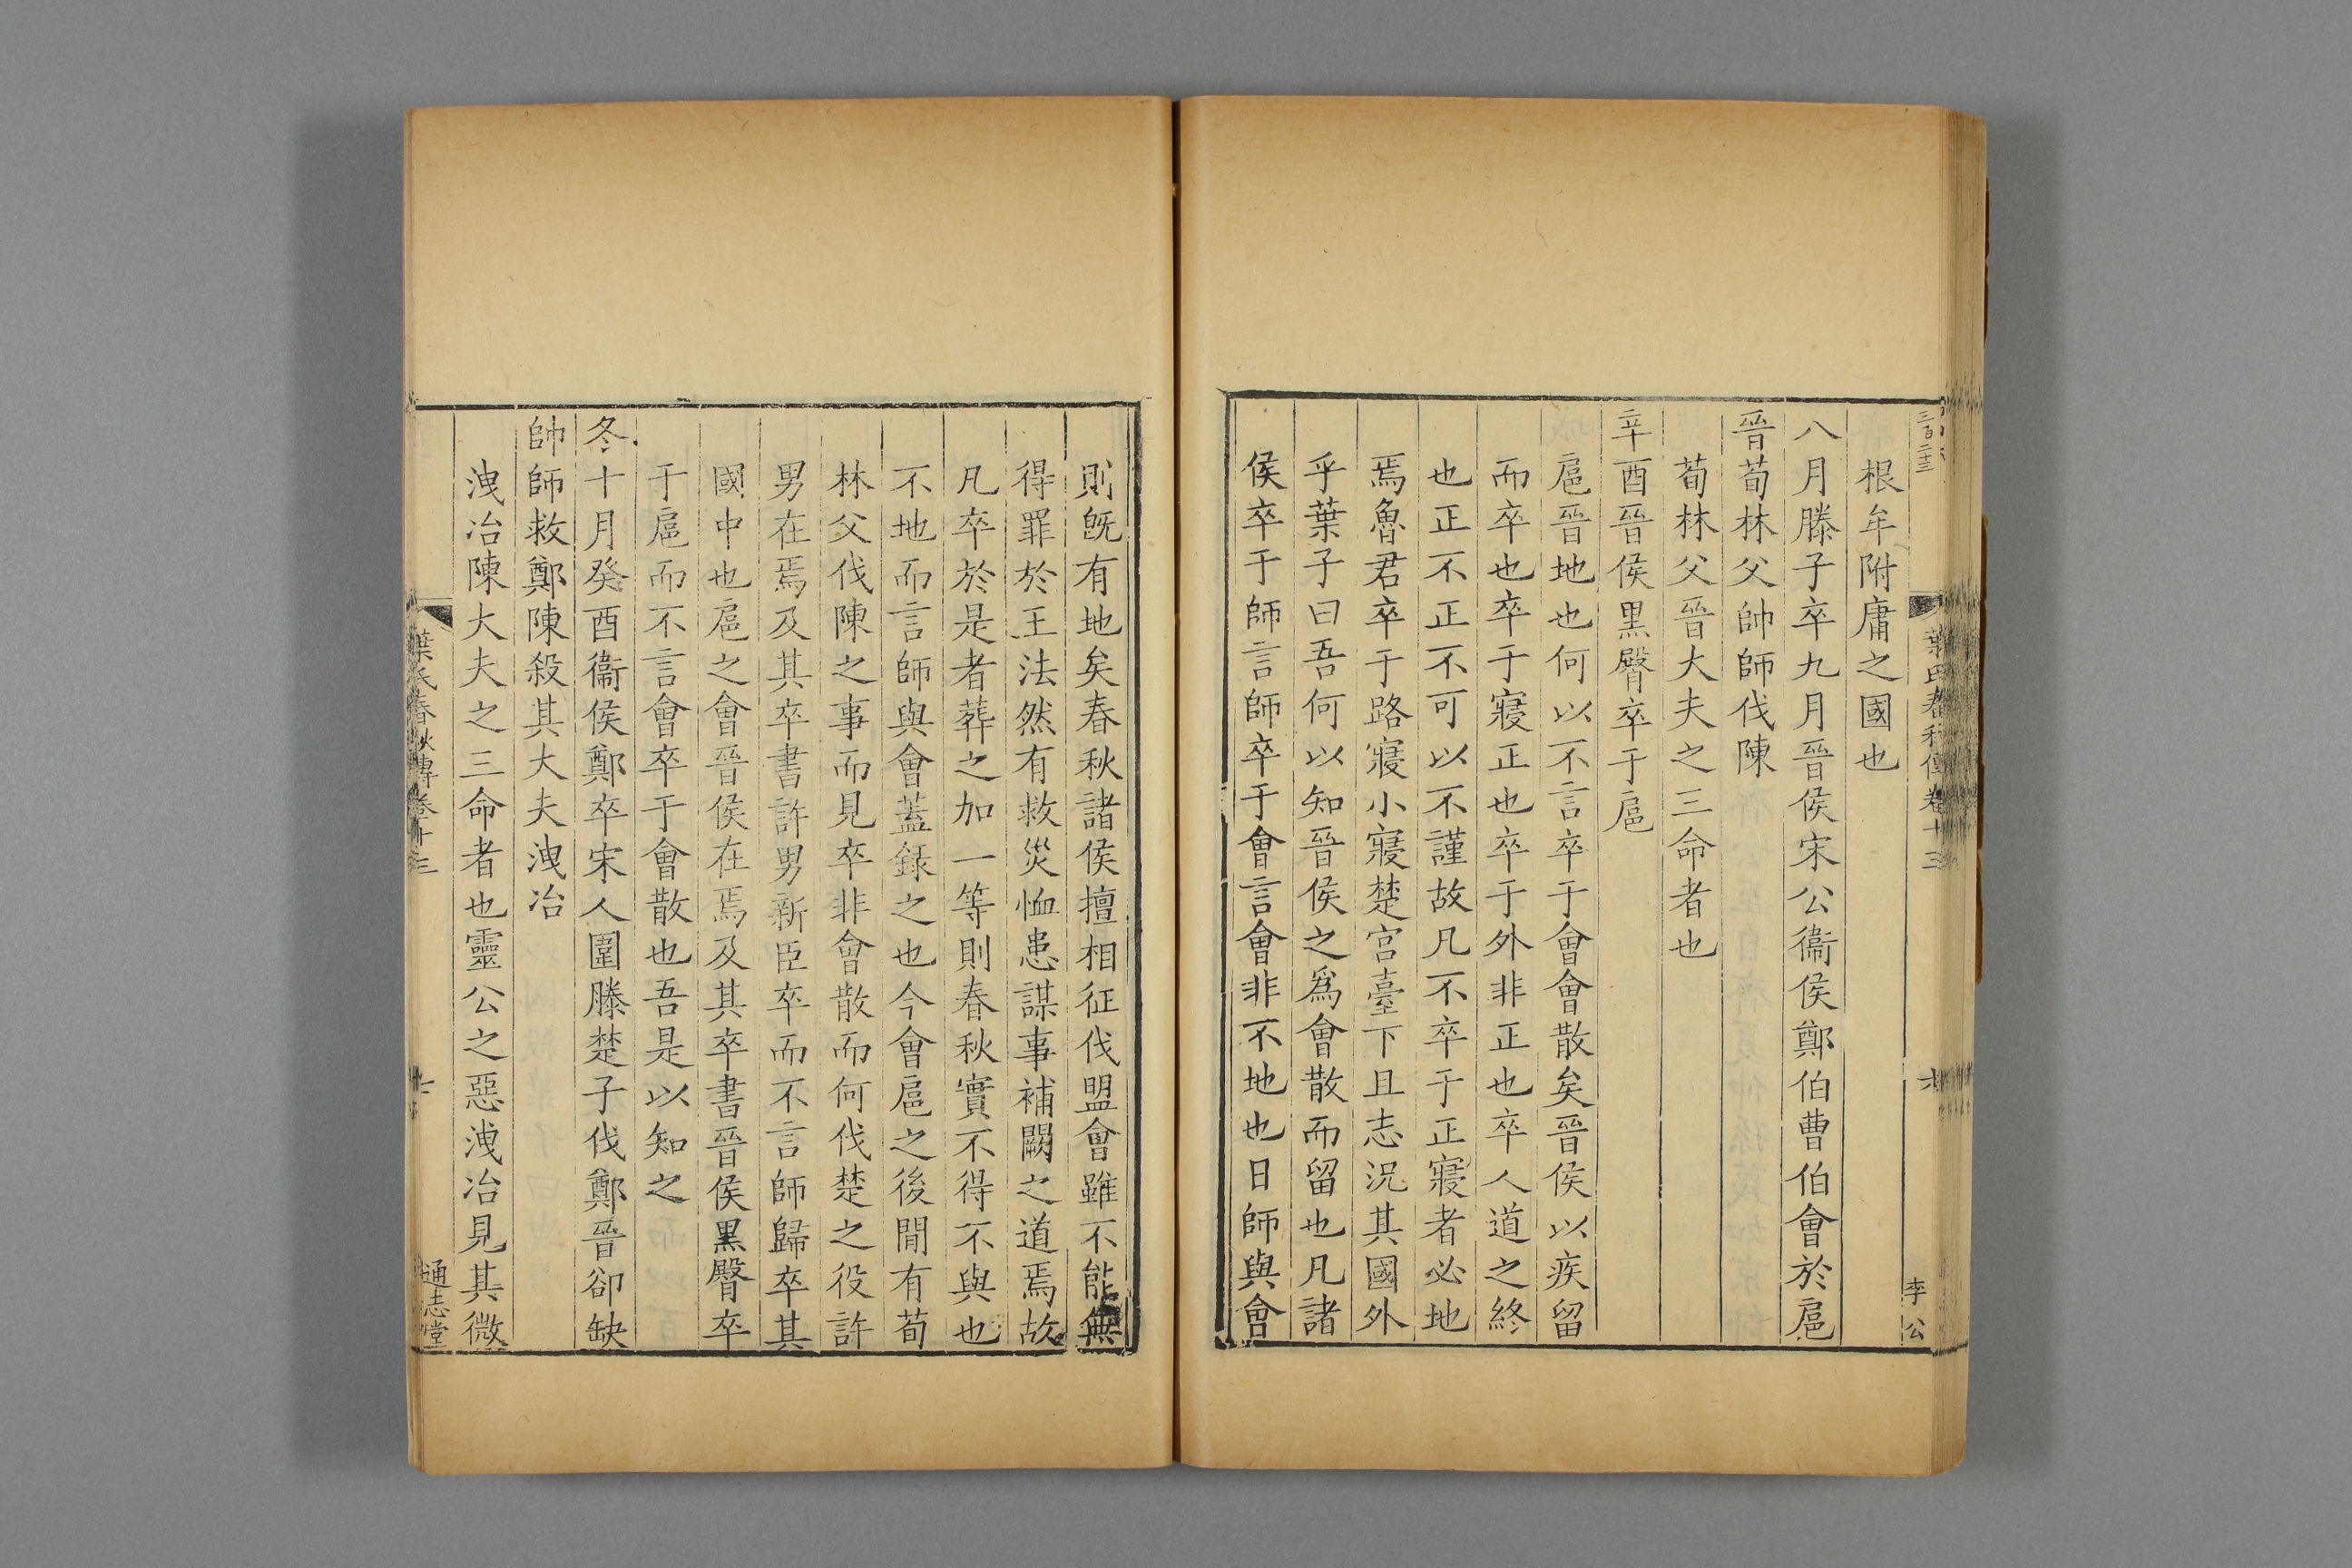 根牟附庸之國也
八月滕子卒九月晉侯宋公衞侯鄭伯曹伯會於扈
晉荀林父帥師伐陳
荀林父晉大夫之三命者也
辛酉晉侯黑臀卒于扈
扈晉地也何以不言卒于會會散矣晉侯以疾留
而卒也卒于寢正也卒于外非正也卒人道之終
也正不正不可以不謹故凡不卒于正寢者必地
焉魯君卒于路寢小寢楚宮臺下且志況其國外
乎葉子曰吾何以知晉侯之爲會散而留也凡諸
侯卒于師言師卒于會言會非不地也曰師與會
則旣有地矣春秋諸侯擅相征伐盟會雖不能無
得罪於王法然有救災恤患謀事補闕之道焉故
凡卒於是者葬之加一等則春秋實不得不與也
不地而言師與會蓋錄之也今會扈之後閒有荀
林父伐陳之事而見卒非會散而何伐楚之役許
男在焉及其卒書許男新臣卒而不言師歸卒其
國中也扈之會晉侯在焉及其卒書晉侯黑臀卒
于扈而不言會卒于會散也吾是以知之
冬十月癸酉衞侯鄭卒宋人圍滕楚子伐鄭晉卻缺
帥師救鄭陳殺其大夫洩冶
洩冶陳大夫之三命者也靈公之惡洩冶見其微
葉氏春秋傳卷十三
通志堂
三百二十三
葉氏春秋傳卷十三
李公